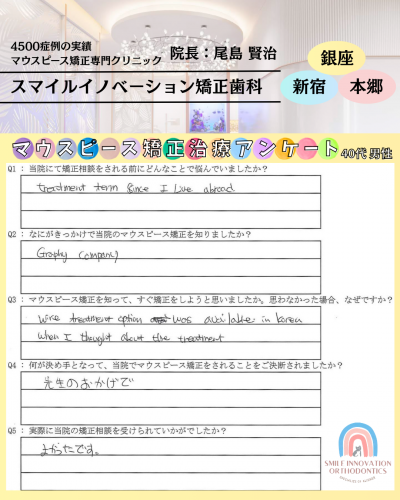 4500症例の実績
マウスピース矯正専門クリニック 院長：尾島 賢治
スマイルイノベーション矯正歯科
銀座
新宿 本郷
マウスピース矯正治療アンケート 40代 男性
Q1 : 当院にて矯正相談をされる前にどんなことで悩んでいましたか？
treatment term since I live abroad
Q2 : なにがきっかけで当院のマウスピース矯正を知りましたか？
Graphy company
Q3 : マウスピース矯正を知って、すぐ矯正をしようと思いましたか。思わなかった場合、なぜですか？
wire treatment option was available in korea
when I thought about the treatment
Q4 : 何が決め手となって、当院でマウスピース矯正をされることをご決断されましたか？
先生のおかげで
Q5 : 実際に当院の矯正相談を受けられていかがでしたか？
よかったです。
SMILE INNOVATION
ORTHODONTICS